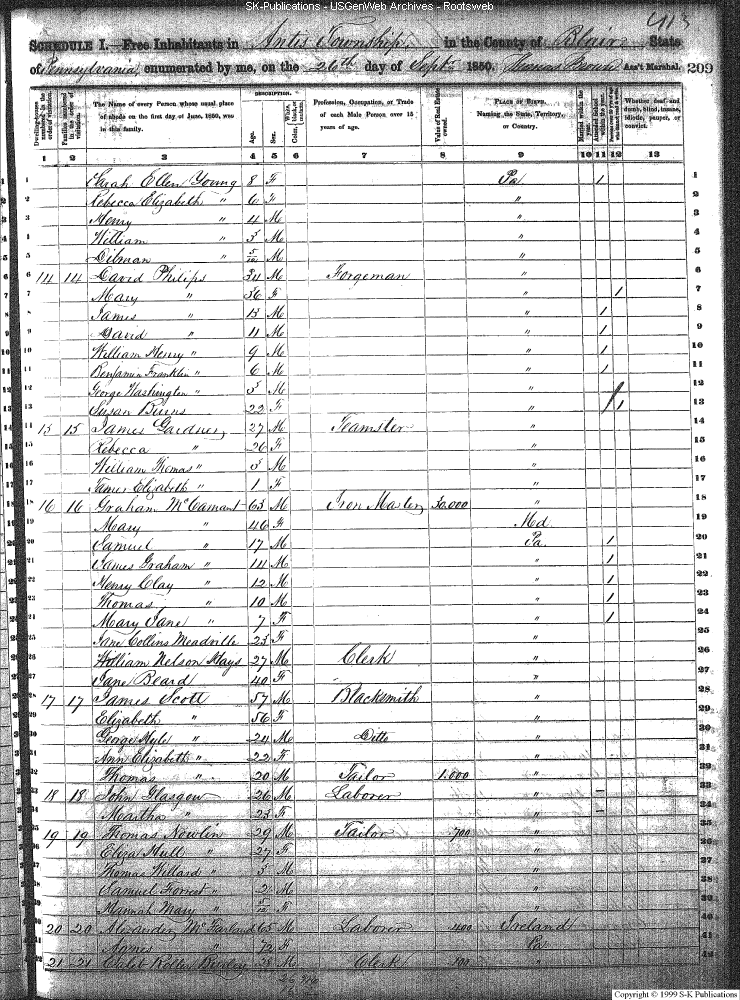 SK-Publications - USGenWeb Archives - Rootsweb
413
SCHEDULE I.—Free Inhabitants in Antis Township in the County of Blair State
of Pennsylvania enumerated by me, on the 26th day of Sept. 1850. Thomas Ass't Marshal. 209
DESCRIPTION.
Dwelling-houses numbered in the order of visitation.
Families numbered in the order of visitation.
The Name of every Person whose usual place of abode on the first day of June, 1850, was in this family.
Age.
Sex.
Color, White, black, or mulatto.
Profession, Occupation, or Trade of each Male Person over 15 years of age.
Value of Real Estate owned.
PLACE OF BIRTH. Naming the State, Territory, or Country.
Married within the year.
Attended School within the year.
Whether deaf and dumb, blind, insane, idiotic, pauper, or convict.
1 2 3 4 5 6 7 8 9 10 11 12 13
1 Sarah Ellen Young 8 F Pa 1 1
2 Rebecca Elizabeth " 6 F " 2
3 Henry " 4 M " 3
4 William " 3 M " 4
5 Dilman " 5/12 M " 5
6 14 14 David Philips 34 M Forgeman " 6
7 Mary " 36 F " 1 7
8 James " 13 M " 1 8
9 David " 11 M " 1 9
10 William Henry " 9 M " 1 10
11 Benjamin Franklin " 6 M " 1 11
12 George Washington " 3 M " 12
13 Susan Burns 22 F " 1 13
14 15 15 James Gardner 27 M Teamster " 14
15 Rebecca " 26 F " 15
16 William Thomas " 3 M " 16
17 Elizabeth " 1 F " 17
18 16 16 Graham McCamant 63 M Iron Master 30,000 " 18
19 Mary " 46 F Md 19
20 Samuel " 17 M Pa 1 20
21 James Graham " 14 M " 1 21
22 Henry Clay " 12 M " 1 22
23 Thomas " 10 M " 1 23
24 Mary Jane " 7 F " 1 24
25 Jane Collins Meadville 23 F " 25
26 William Nelson Hays 27 M Clerk " 26
27 Jane Beard 40 F " 27
28 17 17 James Scott 57 M Blacksmith " 28
29 Elizabeth " 56 F " 29
30 George " 24 M Ditto " 30
31 Ann Elizabeth " 22 F " 31
32 Thomas " 20 M Tailor 1,000 " 32
33 18 18 John Glasgow 26 M Laborer " 33
34 Martha " 23 F " 34
35 19 19 Thomas Nowlin 29 M Tailor 700 " 35
36 Eliza Hull " 27 F " 36
37 Thomas Willard " 3 M " 37
38 Samuel Forrest " 2 M " 38
39 Hannah Mary " 5/12 F " 39
40 20 20 Alexander McFarland 65 M Laborer 400 Ireland 40
41 Agnes " 72 F 41
42 21 21 Caleb 28 M Clerk 500 " 42
Copyright © 1999 S-K Publications